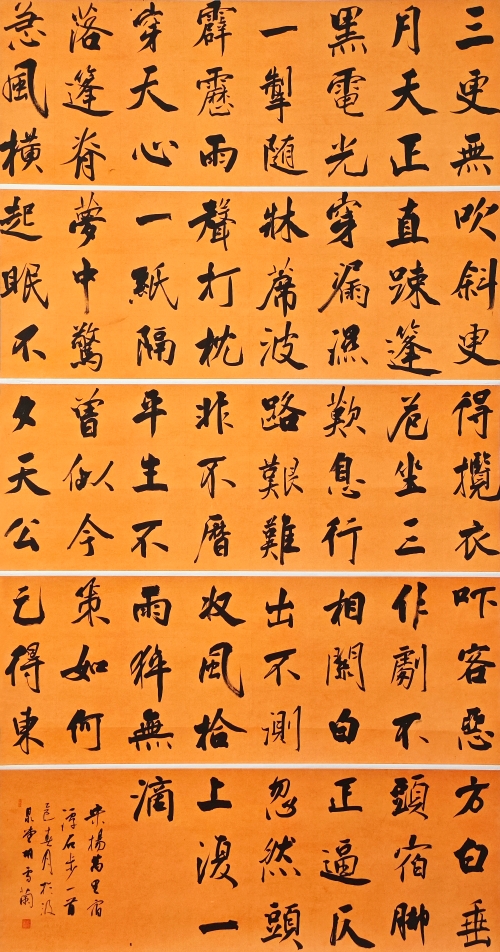 三更無
月天正
黑電光
一掣随
霹靂雨
穿天心
落篷脊
急風横
吹斜更
直踈篷
穿漏濕
牀蓆波
聲打枕
一紙隔
夢中驚
起眠不
得攬衣
危坐三
歎息行
路艱難
非不曆
平生不
曾似今
夕天公
吓客惡
作劇不
相關白
出不測
收風拾
雨猝無
策如何
乞得東
方白垂
頭宿脚
正逼仄
忽然頭
上復一
滴
宋楊萬里宿
潭石步一首
春月於汲
泉堂胡雪蘭